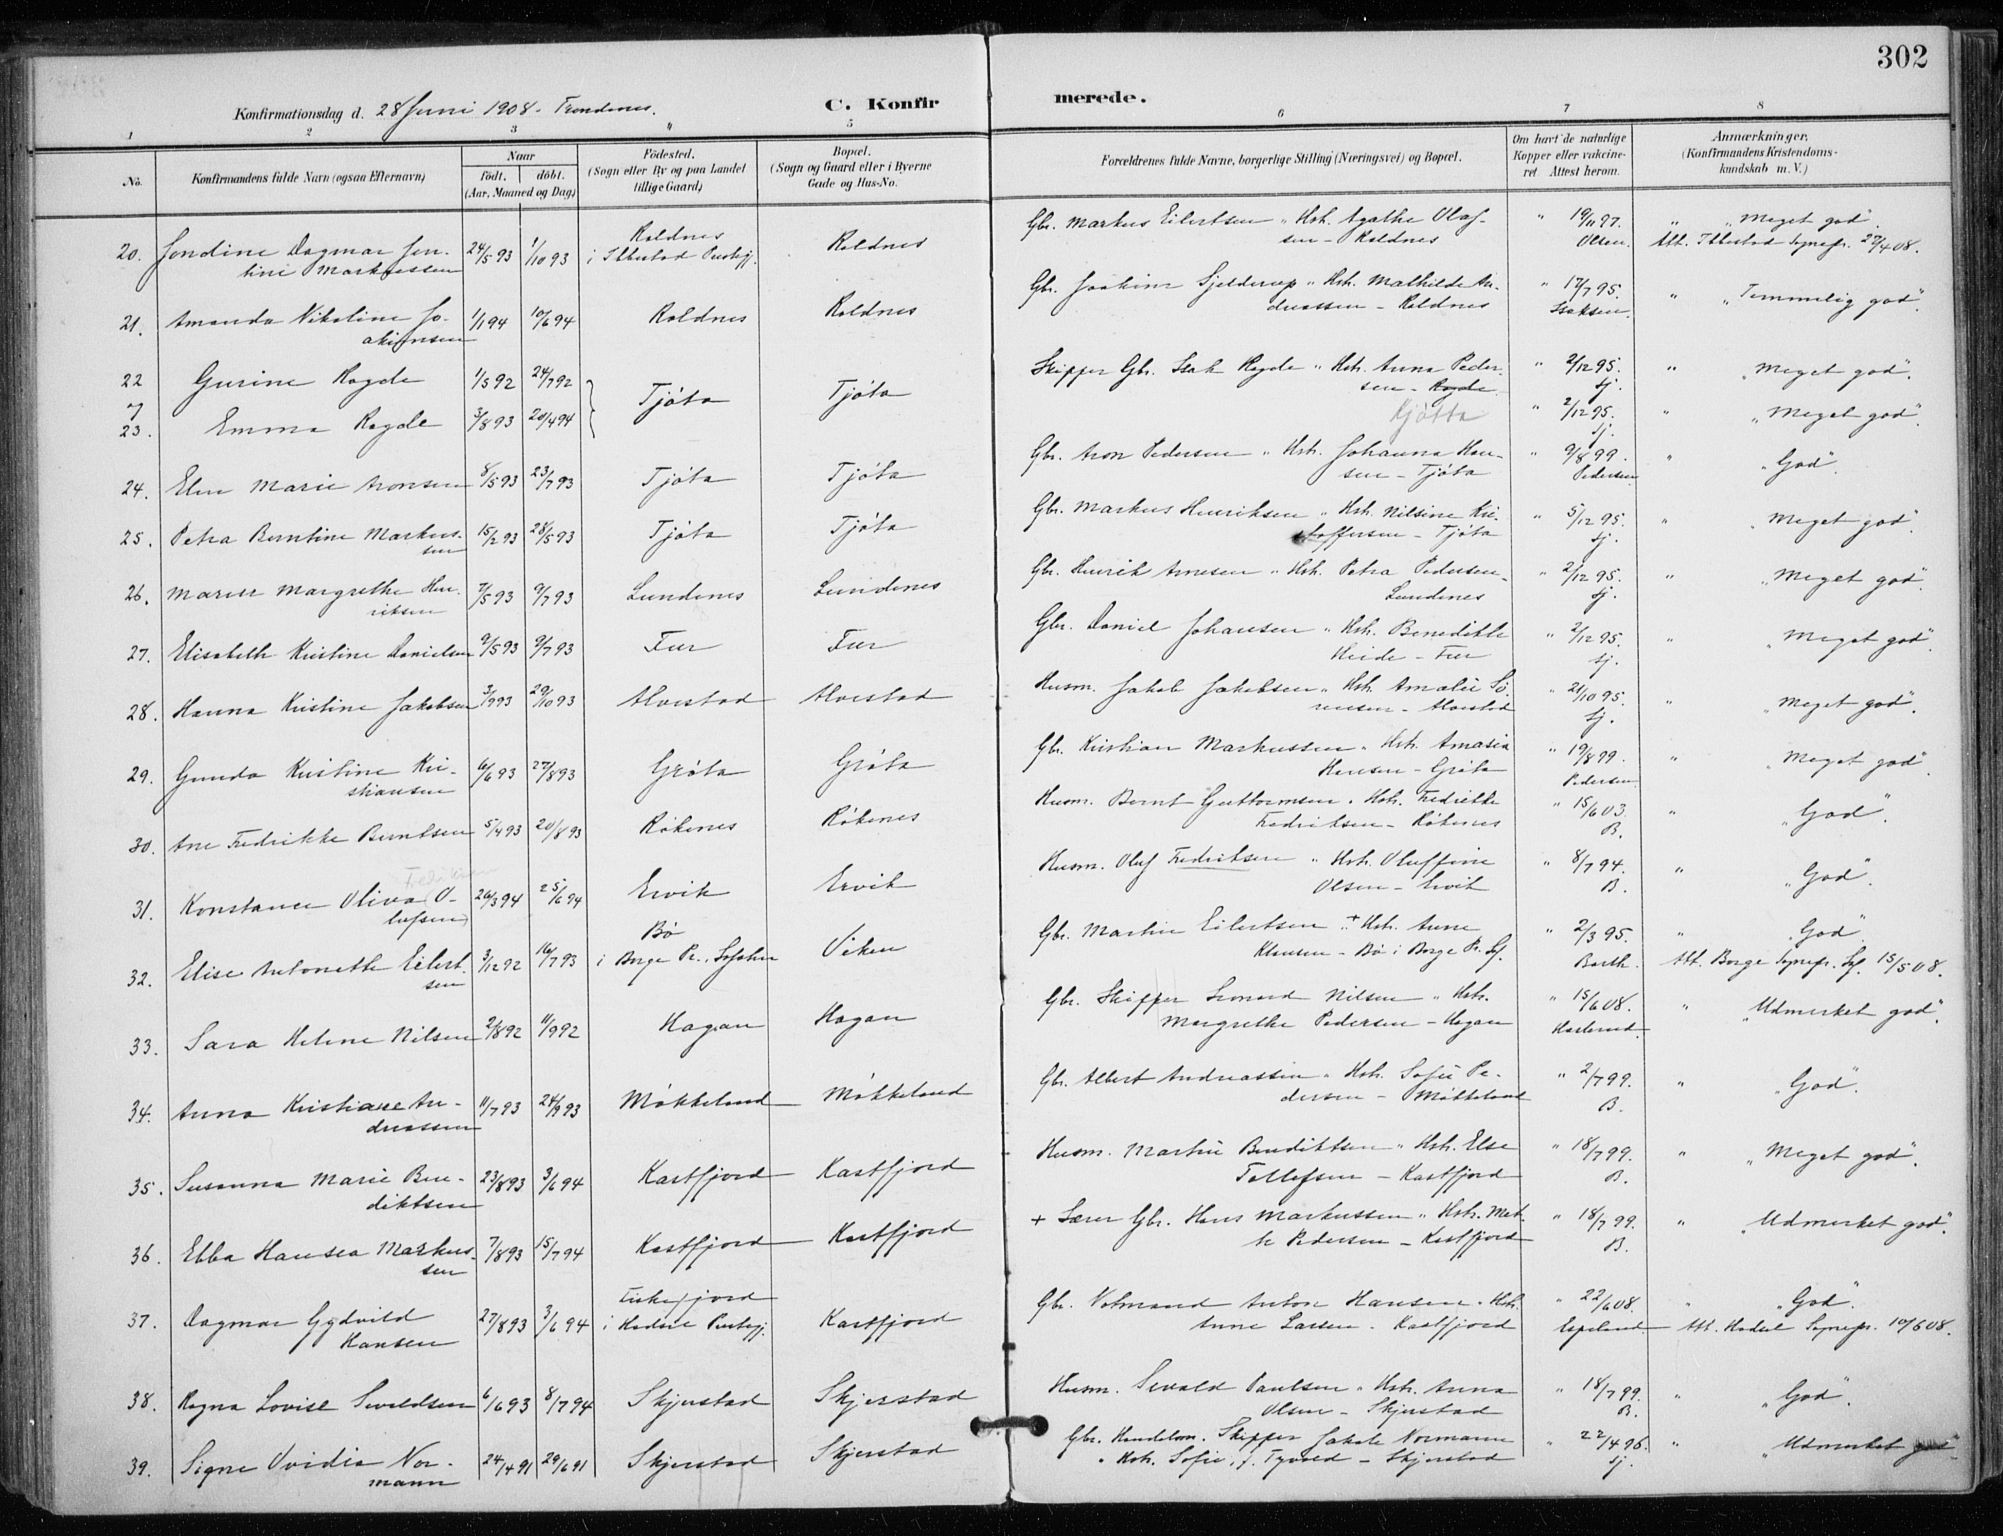 302
Konfirmationsdag d. 28 Juni 1908 - Trondenes.
C. Konfir merede.
1 2 3 " 5 6 7 8
No.
Konfirmandens fulde Navn (ogsaa Efternavn)
Naar
födt. döbt.
(Aar, Maaned og Dag)
Födested.
(Sogn eller By og paa Landet
tillige Gaard)
Bopæl.
(Sogn og Gaard eller i Byerne
Gade og Hus-No.
Forældrenes fulde Navne, borgerlige Stilling (Næringsvei) og Bopæl.
Om havt de naturlige
Kopper eller vakcine-
ret Attest herom.
Anmærkninger.
(Konfirmandens Kristendoms-
kundskab m. V.)
20. Jendine Dagmar Jen- 24/5 93 1/10 93 Roldnes Roldnes Gbr. Markus Eilertsen " Hstr. Agathe Olaf- " 19/11 97. " "Meget god".
tine Markussen i Ibbestad Prestegj. sen - Roldnes Olsen. Att. Ibbestad Sognepr. 27/4 08.
21. Amanda Nikoline Jo- 1/1 94 10/6 94 Roldnes Roldnes Gbr. Joakim Gjelderup " Hstr. Mathilde An- " 17/7 95. " "Temmelig god".
akimsen dreassen - Roldnes Isaksen.
22 Gurine Ragde 1/5 92 24/7 92 Tjøta Tjøta Skipper Gbr. Isak Ragde " Hstr. Anna Peder- " 2/12 95. " "Meget god".
sen - Ragde Sj.
Kjøtta
23. Emma Ragde 3/8 93 20/4 94 " 2/12 95. " "Meget god".
Sj.
24. Elen Marie Aronsen 8/5 93 23/7 93 Tjøta Tjøta Gbr. Aron Pedersen " Hstr. Johanna Han- " 9/8 99. " "God".
sen - Tjøta Pedersen
25. Petra Berntine Markus- 15/2 93 28/5 93 Tjøta Tjøta Gbr. Markus Henriksen " Hstr. Nilsine Kri- " 5/12 95. " "Meget god".
sen stoffersen - Tjøta Sj.
26. Maren Margrethe Hen- 7/5 93 9/7 93 Lundenes Lundenes Gbr. Henrik Arnesen " Hstr. Petra Pedersen - " 2/12 95. " "Meget god".
riksen Lundenes Sj.
27. Elisabeth Kristine Danielsen 9/5 93 9/7 93 Fur Fur Gbr. Daniel Johansen " Hstr. Benedikte " 2/12 95. " "Meget god".
Heide - Fur Sj.
28. Hanna Kristine Jakobsen 3/9 93 29/10 93 Alvestad Alvestad Husm. Jakob Jakobsen " Hstr. Amalie Sø- " 21/10 95. " "Meget god".
rensen - Alvestad Sj.
29. Gunda Kristine Kri- 6/6 93 27/8 93 Grøta Grøta Gbr. Kristian Markussen " Hstr. Amasia " 19/8 99. " "Meget god".
stiansen Hansen - Grøta Pedersen
30. Ane Fredrikke Berntsen 5/4 93 20/8 93 Røkenes Røkenes Husm. Bernt Guttormsen " Hstr. Fredrikke " 15/6 03. " "God".
Fredriksen - Røkenes B.
Fredriksen
31. Konstance Oliva (O- 26/3 94 25/6 94 Ervik Ervik Husm. Oluf Fredriksen " Hstr. Oluffine " 8/7 94. " "God".
lufsen) Olsen - Ervik B.
32. Elise Antonette Eilert- 3/12 92 16/7 93 Bø Viken Gbr. Martin Eilertsen " + Hstr. Anne " 2/3 95. " "God".
sen i Borge Pr., Lofoten Klausen - Bø i Borge Pr. Lof. Barth. Att. Borge Sognepr. Lof. 15/5 08.
33. Sara Helene Nilsen 2/8 92 11/9 92 Hagan Hagan Gbr. Skipper Leonard Nilsen " Hstr. " 15/6 08. " "Udmerket god".
Margrethe Pedersen - Hagan
34. Anna Kristiane An- 11/7 93 24/9 93 Møkkeland Møkkeland Gbr. Albert Andreassen " Hstr. Sofie Pe- " 2/7 99. " "God".
dreassen dersen - Møkkeland B.
35. Susanna Marie Ben- 23/8 93 3/6 94 Kastfjord Kastfjord Husm. Martin Bendiktsen " Hstr. Else " 18/7 99. " "Meget god".
diktsen Tollefsen - Kastfjord B.
36. Ebba Hansea Markus- 7/8 93 15/7 94 Kastfjord Kastfjord + Lærer Gbr. Hans Markussen " Hstr. Met- " 18/7 99. " "Udmerket god".
sen te Pedersen - Kastfjord B.
37. Dagmar Gydvild 27/8 93 3/6 94 Fiskefjord Kastfjord Gbr. Volmand Anton Hansen " Hstr. " 22/6 08. " "God".
Hansen i Hadsel Prestegj. Anne Larsen - Kastfjord Espeland Att. Hadsel Sognepr. 10/6 08.
38. Ragna Lovise Sivaldsen 6/6 93 8/7 94 Skjerstad Skjerstad Husm. Sivald Paulsen " Hstr. Anna " 18/7 99. " "God".
Olsen - Skjerstad B.
39. Signe Ovidia Nor- 24/4 91 29/6 91 Skjerstad Skjerstad Gbr. Handelsm. Skipper Jakob Normann " 22/4 96. " "Udmerket god"
mann " Hstr. Sofie, f. - Skjerstad Sj.